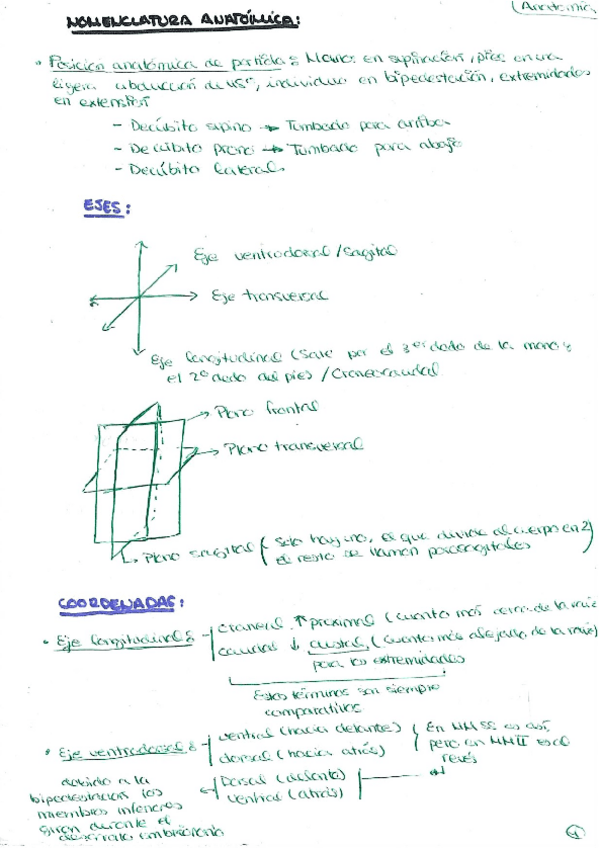 (Anatomía
NOMENCLATURA ANATÓMICA:
• Posición anatómica de partida: Manos en supinación, pies en una
ligera abducción de 45º, individuo en bipedestación, extremidades
en extensión
- Decúbito supino → Tumbado para arriba
- Decúbito prono → Tumbado para abajo
- Decúbito lateral
EJES:
Eje ventrodorsal / Sagital
Eje transversal
Eje longitudinal (Sale por el 3er dedo de la mano y
el 2º dedo del pies) / Craneocaudal
Plano frontal
Plano transversal
Plano sagital (Solo hay uno, el que divide al cuerpo en 2)
el resto se llaman parasagitales
COORDENADAS:
• Eje longitudinal: craneal ↑ proximal (cuanto más cerca de la raíz
caudal ↓ distal (cuanto más alejada de la raíz)
para las extremidades
Estos términos son siempre
comparativos
• Eje ventrodorsal: ventral (hacia delante) En MMSS es así,
dorsal (hacia atrás) pero en MMII es al
revés
Dorsal (delante)
ventral (atrás)
debido a la
bipedestación los
miembros inferiores
giran durante el
desarrollo embrionario
1